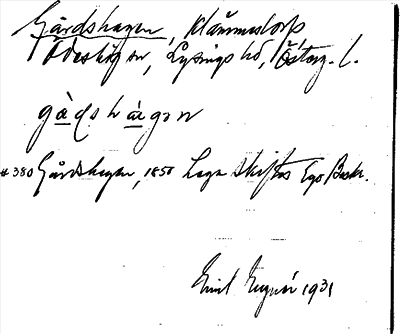 Gårdshagen, Klåmmestorps
Ödeshögsn, Lysings hd, Österg. l.
gàdshàgən
#380 Gårdshagen, 1850 Laga Skiftes Ego Beskr.
Emil 1931